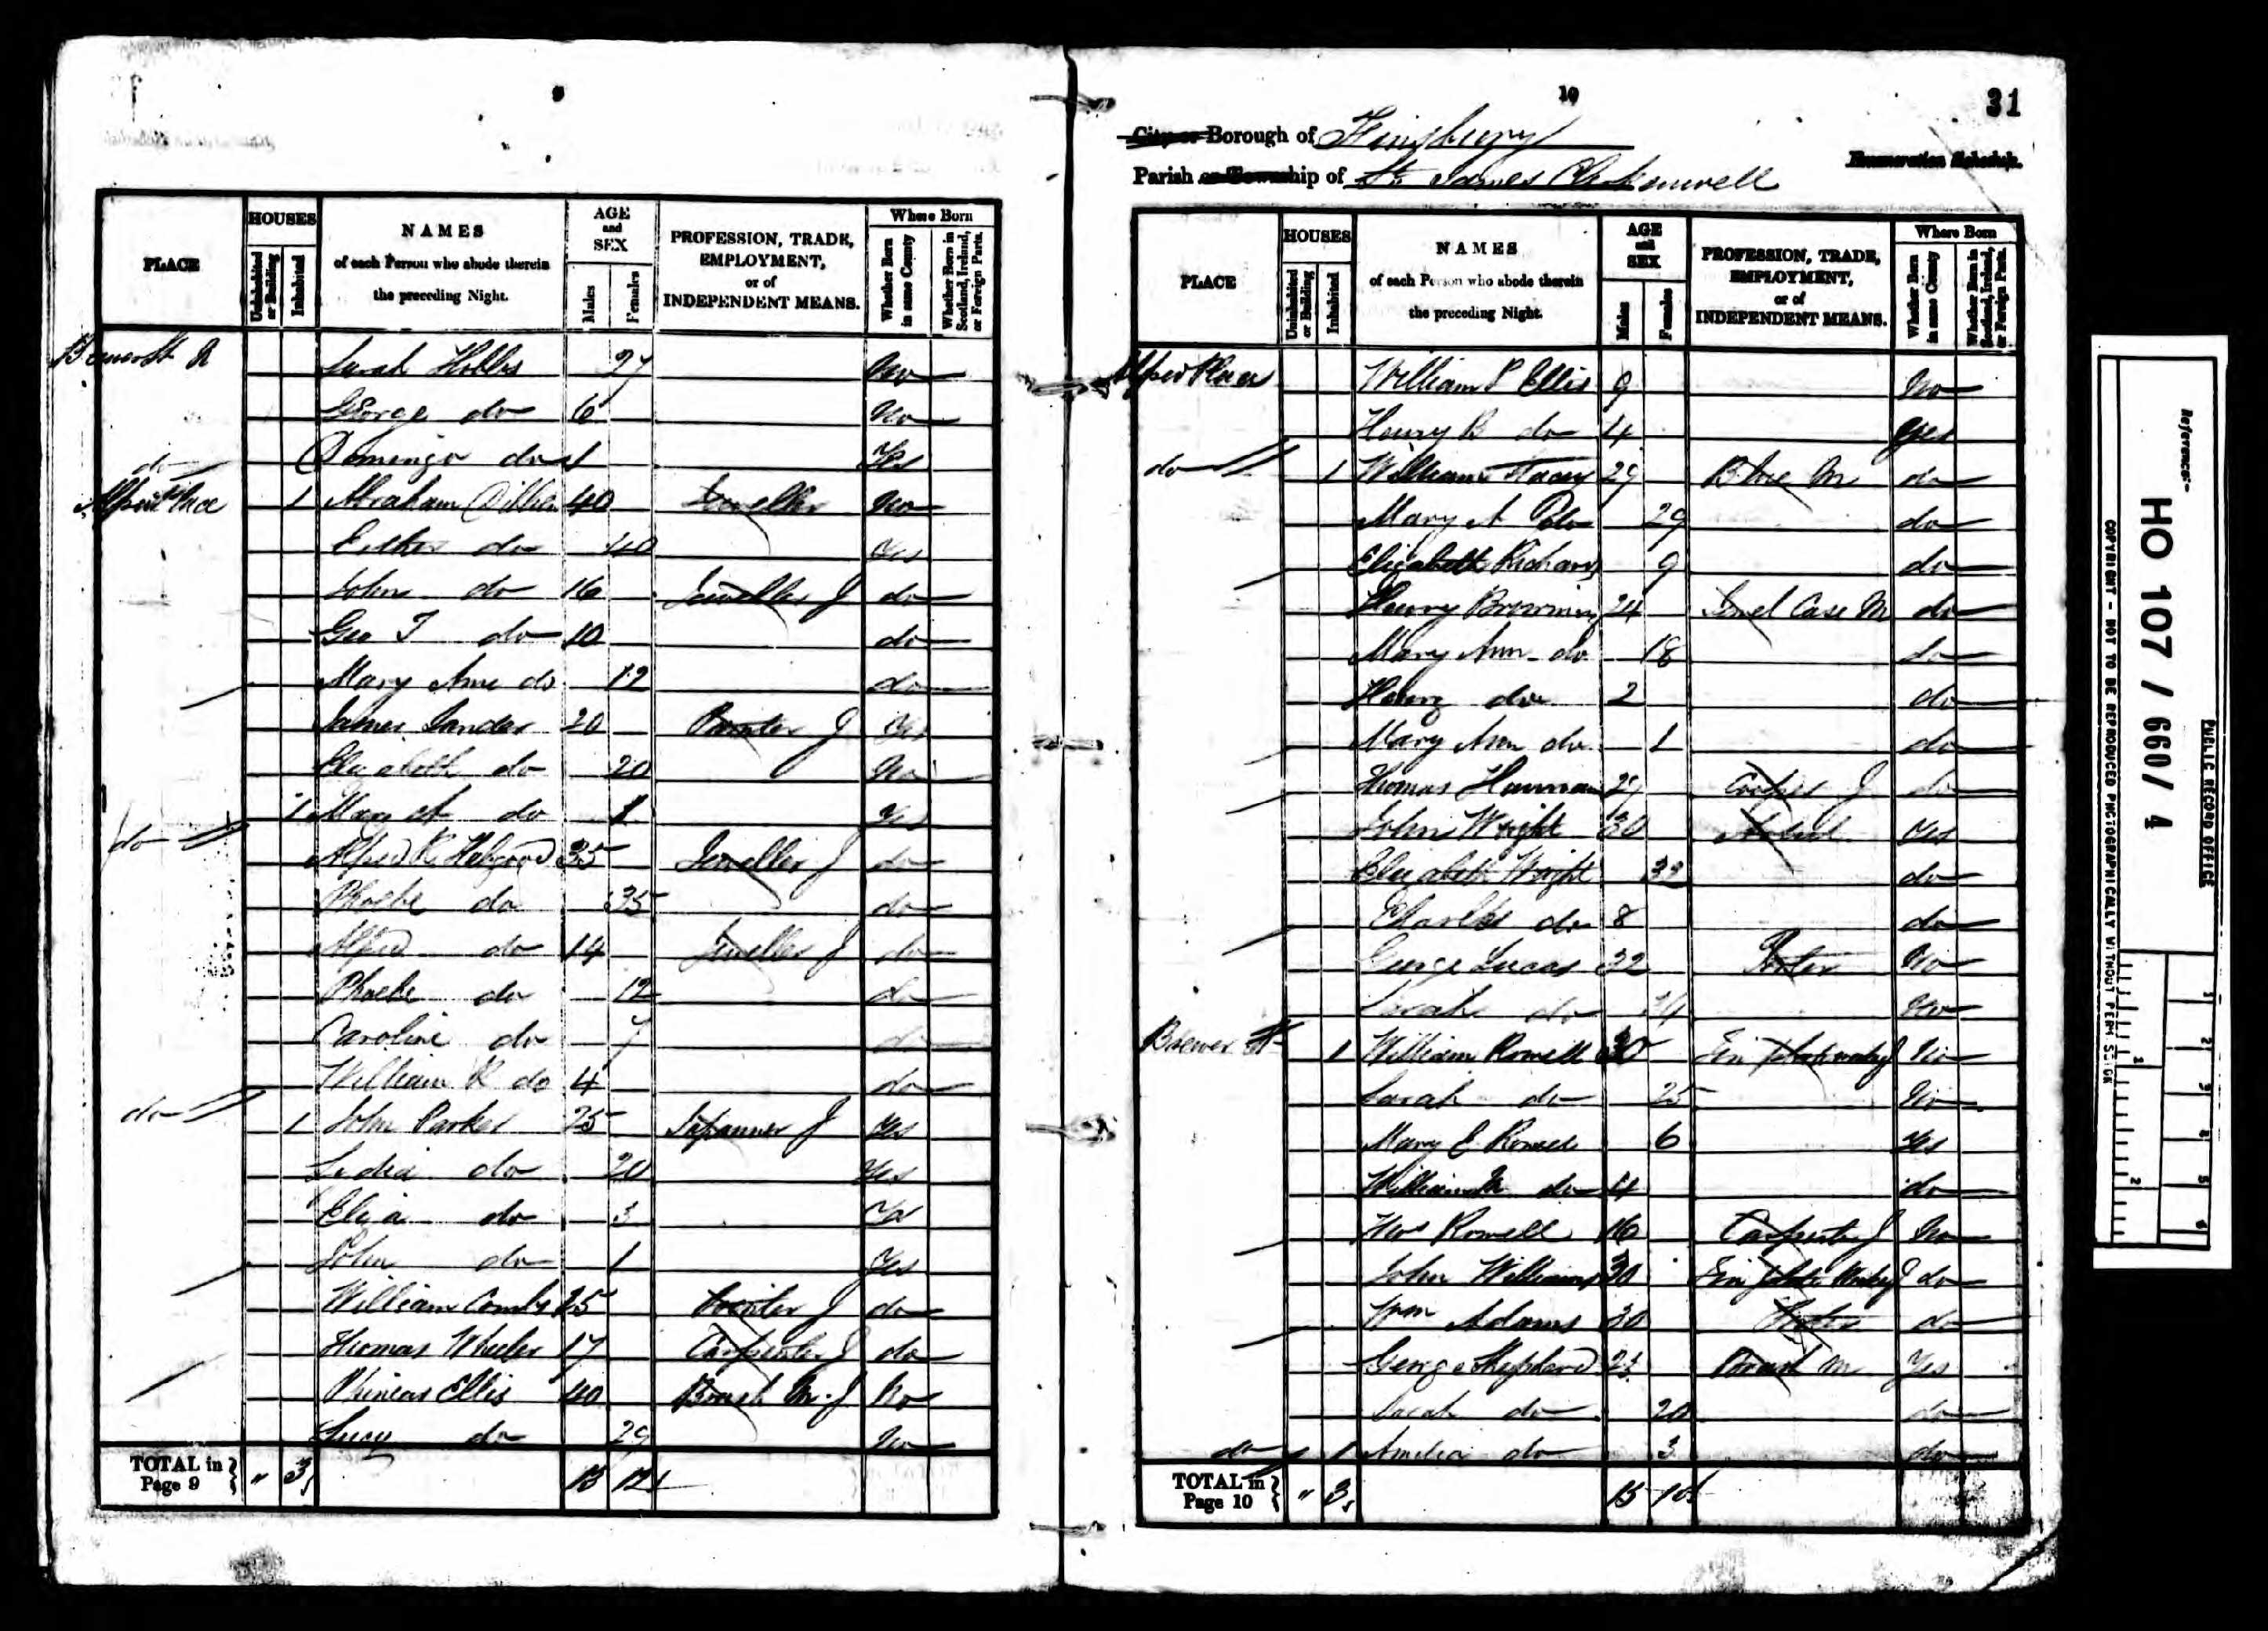 9
PLACE
HOUSES
Uninhabited or Building
Inhabited
NAMES
of each Person who abode therein
the preceding Night.
AGE
and
SEX
Males
Females
PROFESSION, TRADE,
EMPLOYMENT,
or of
INDEPENDENT MEANS.
Where Born
Whether Born in same County
Whether Born in Scotland, Ireland, or Foreign Parts.
Sarah Hollis 27 No
George do 6 No
Domingo do 1 Yes
do
Place 1 Abraham 40 Jeweller No
Esther do 40 Yes
John do 16 Jeweller J do
Geo T do 10 do
Mary Ann do 12 do
James Sander 20 Painter J Yes
Elizabeth do 20 No
1 Mary A do 1 Yes
do Alfred K 35 Jeweller J do
Phoebe do 35 do
Alfred do 14 Jeweller J do
Phoebe do 12 do
Caroline do 7 do
William K do 4 do
do 1 John Parker 25 Japanner J Yes
Lydia do 20 Yes
Eliza do 3 Yes
John do 1 Yes
William Combs 25 J do
Thomas Wheeler 17 Carpenter J do
Phineas Ellis 40 Brush M. J No
Lucy do 29 No
TOTAL in Page 9 " 3 13 12
10
31
City or Borough of Finsbury
Enumeration Schedule.
Parish or Township of St James Clerkenwell
PLACE
HOUSES
Uninhabited or Building
Inhabited
NAMES
of each Person who abode therein
the preceding Night.
AGE
and
SEX
Males
Females
PROFESSION, TRADE,
EMPLOYMENT,
or of
INDEPENDENT MEANS.
Where Born
Whether Born in same County
Whether Born in Scotland, Ireland, or Foreign Parts.
Alfred Place William P Ellis 9 No
Henry B do 4 Yes
do 1 William Stacey 29 M do
Mary A do 29 do
Elizabeth Richards 9 do
Henry Browning 24 Jewel Case M do
Mary Ann do 18 do
Henry do 2 do
Mary Ann do 1 do
Thomas 29 J do
John Wright 30 Yes
Elizabeth Wright 33 do
Charles do 8 do
George Lucas 32 Porter No
Sarah do No
Brewer St 1 William Rowell 30 No
Sarah do 25 No
Mary E Rowell 6 Yes
William M do 4 do
Thos Rowell 16 Carpenter J No
John Williams 30 Tin Plate J do
Wm Adams 30 do
George Shepherd 25 Brush M Yes
Sarah do 20 do
do 1 Amelia do 3 do
TOTAL in Page 10 " 3 15 10
Reference:-
HO 107 / 660 / 4
PUBLIC RECORD OFFICE
COPYRIGHT - NOT TO BE REPRODUCED PHOTOGRAPHICALLY WITHOUT PERMISSION